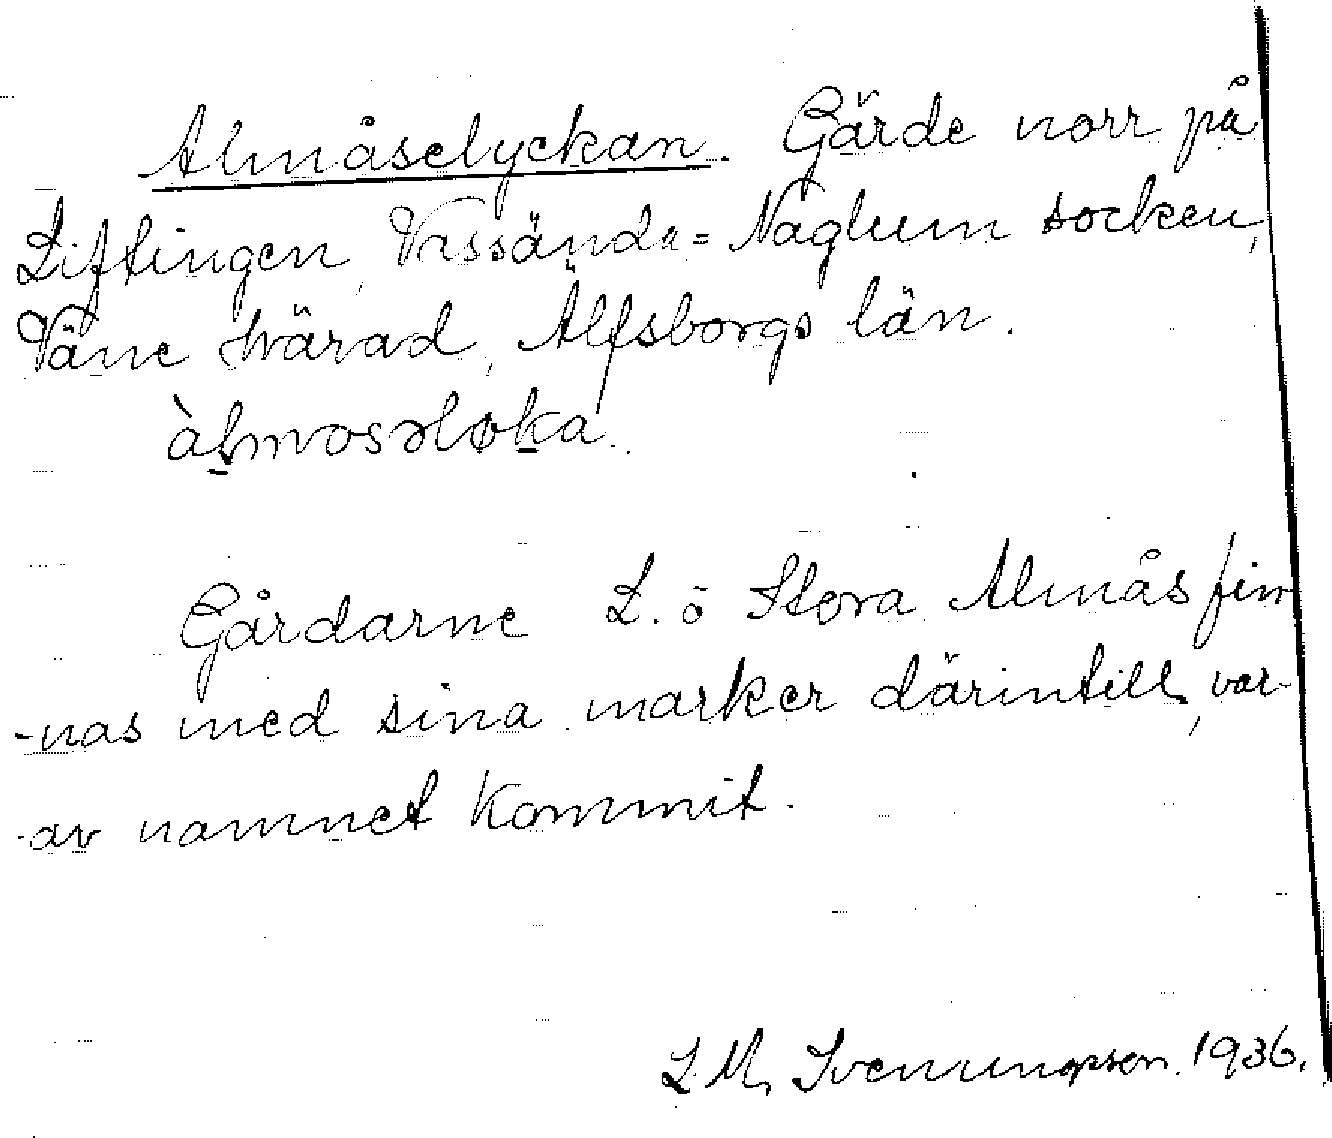 Almåselyckan. Gärde norr på
Liftingen, Vassända=Naglum socken,
Väne härad, Älfsborgs län.
àlmosəløka.
Gårdarne L. o Stora Almås fin-
-nas med sina marker därintill, var-
-av namnet kommit.
L. M. Svenungsson. 1936.